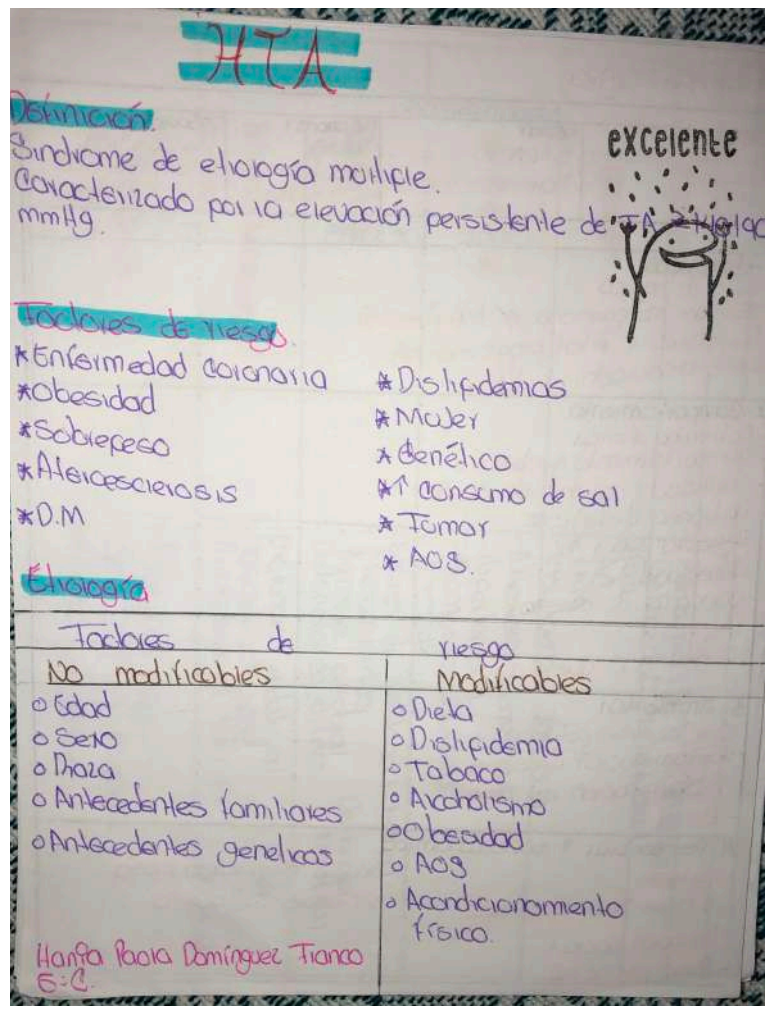 HTA
Definición.
excelente
Sindrome de etiología multiple.
Caracterizado por la elevación persistente de TA ≥ 140/90
mmHg.
Factores de riesgo.
*Enfermedad coronaria
*Obesidad
*Sobrepeso
*Aterosclerosis
*D.M
*Dislipidemias
*Mujer
*Genético
*↑ consumo de sal
*Tumor
*AOS.
Etiología
Factores de riesgo
No modificables
o Edad
o Sexo
o Raza
o Antecedentes familiares
o Antecedentes geneticos
Modificables
o Dieta
o Dislipidemia
o Tabaco
o Alcoholismo
o Obesidad
o AOS
o Acondicionamiento
físico.
Paola Domínguez
E:C.